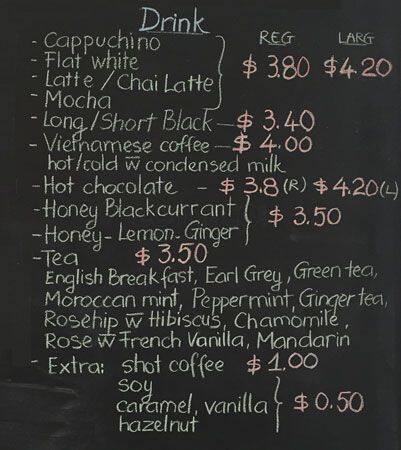 Drink
REG LARG
- Cappuchino
- Flat white $3.80 $4.20
- Latte / Chai Latte
- Mocha
- Long/Short Black - $3.40
- Vietnamese coffee - $4.00
hot/cold w̅ condensed milk
- Hot chocolate - $3.8 (R) $4.20 (L)
- Honey Blackcurrant
- Honey-Lemon-Ginger $3.50
- Tea $3.50
English Breakfast, Earl Grey, Green tea,
Moroccan mint, Peppermint, Ginger tea,
Rosehip w̅ Hibiscus, Chamomile,
Rose w̅ French Vanilla, Mandarin
- Extra: shot coffee $1.00
soy
caramel, vanilla $0.50
hazelnut